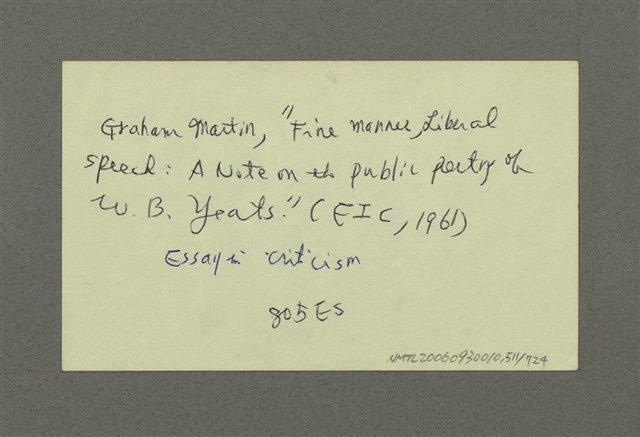 Graham Martin, "Fine manner, Liberal
speech: A Note on the public poetry of
W. B. Yeats." (EIC, 1961)
Essay in criticism
805 ES
NMTL20060930010,511/724